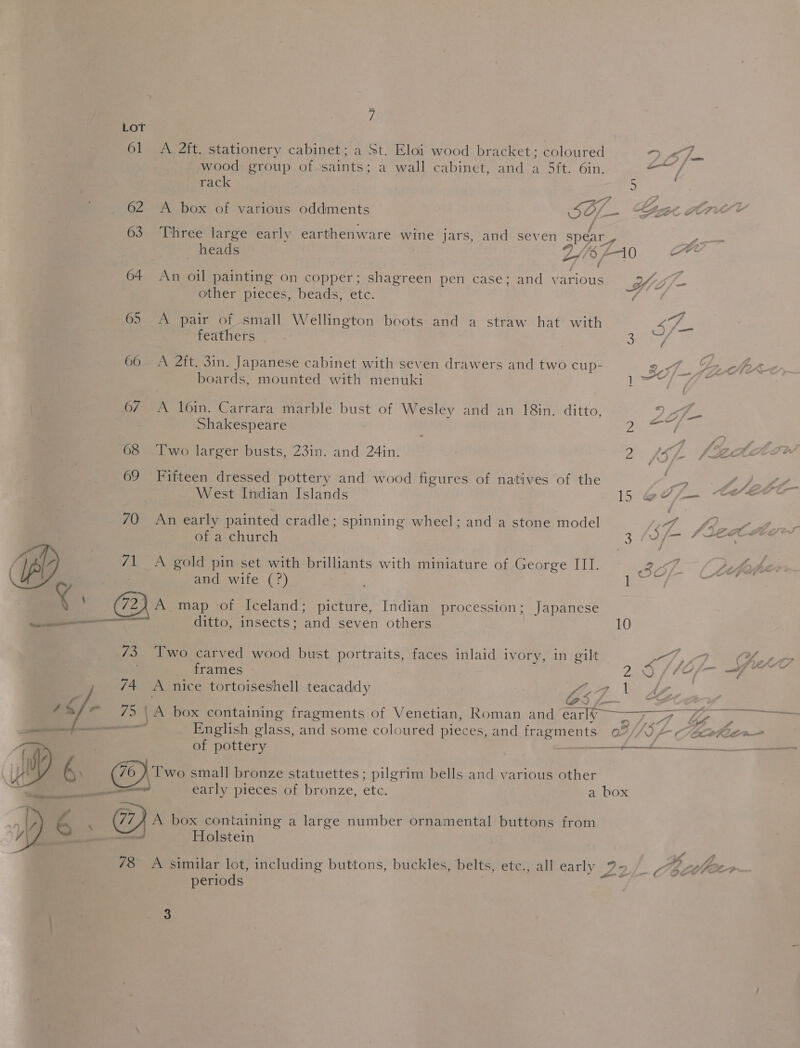 7
LOT
61 A 2ft. stationery cabinet; a St. Eloi wood bracket; coloured
wood group of saints; a wall cabinet, and a 5ft. 6in. 25/-
rack 5
62 A box of various oddments 50/-
63 Three large early earthenware wine jars, and seven spear
heads 10
64 An oil painting on copper; shagreen pen case; and various
other pieces, beads, etc.
65 A pair of small Wellington boots and a straw hat with 5/-
feathers 3
66 A 2ft. 3in. Japanese cabinet with seven drawers and two cup-
boards, mounted with menuki 1
67 A 16in. Carrara marble bust of Wesley and an 18in. ditto,
Shakespeare 2
68 Two larger busts, 23in. and 24in. 2 15/-
69 Fifteen dressed pottery and wood figures of natives of the
West Indian Islands 15
70 An early painted cradle; spinning wheel; and a stone model
of a church 3 15/-
71 A gold pin set with brilliants with miniature of George III.
and wife (?) 1 30/-
72 A map of Iceland; picture, Indian procession; Japanese
ditto, insects; and seven others 10
73 Two carved wood bust portraits, faces inlaid ivory, in gilt
frames 2
74 A nice tortoiseshell teacaddy 1
15/- 75 A box containing fragments of Venetian, Roman and early
English glass, and some coloured pieces, and fragments
of pottery
6 76 Two small bronze statuettes; pilgrim bells and various other
early pieces of bronze, etc. a box
6 77 A box containing a large number ornamental buttons from
Holstein
78 A similar lot, including buttons, buckles, belts, etc., all early 22/-
periods
3